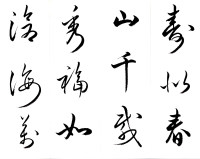 壽似春
山千載
秀福如
滄海萬